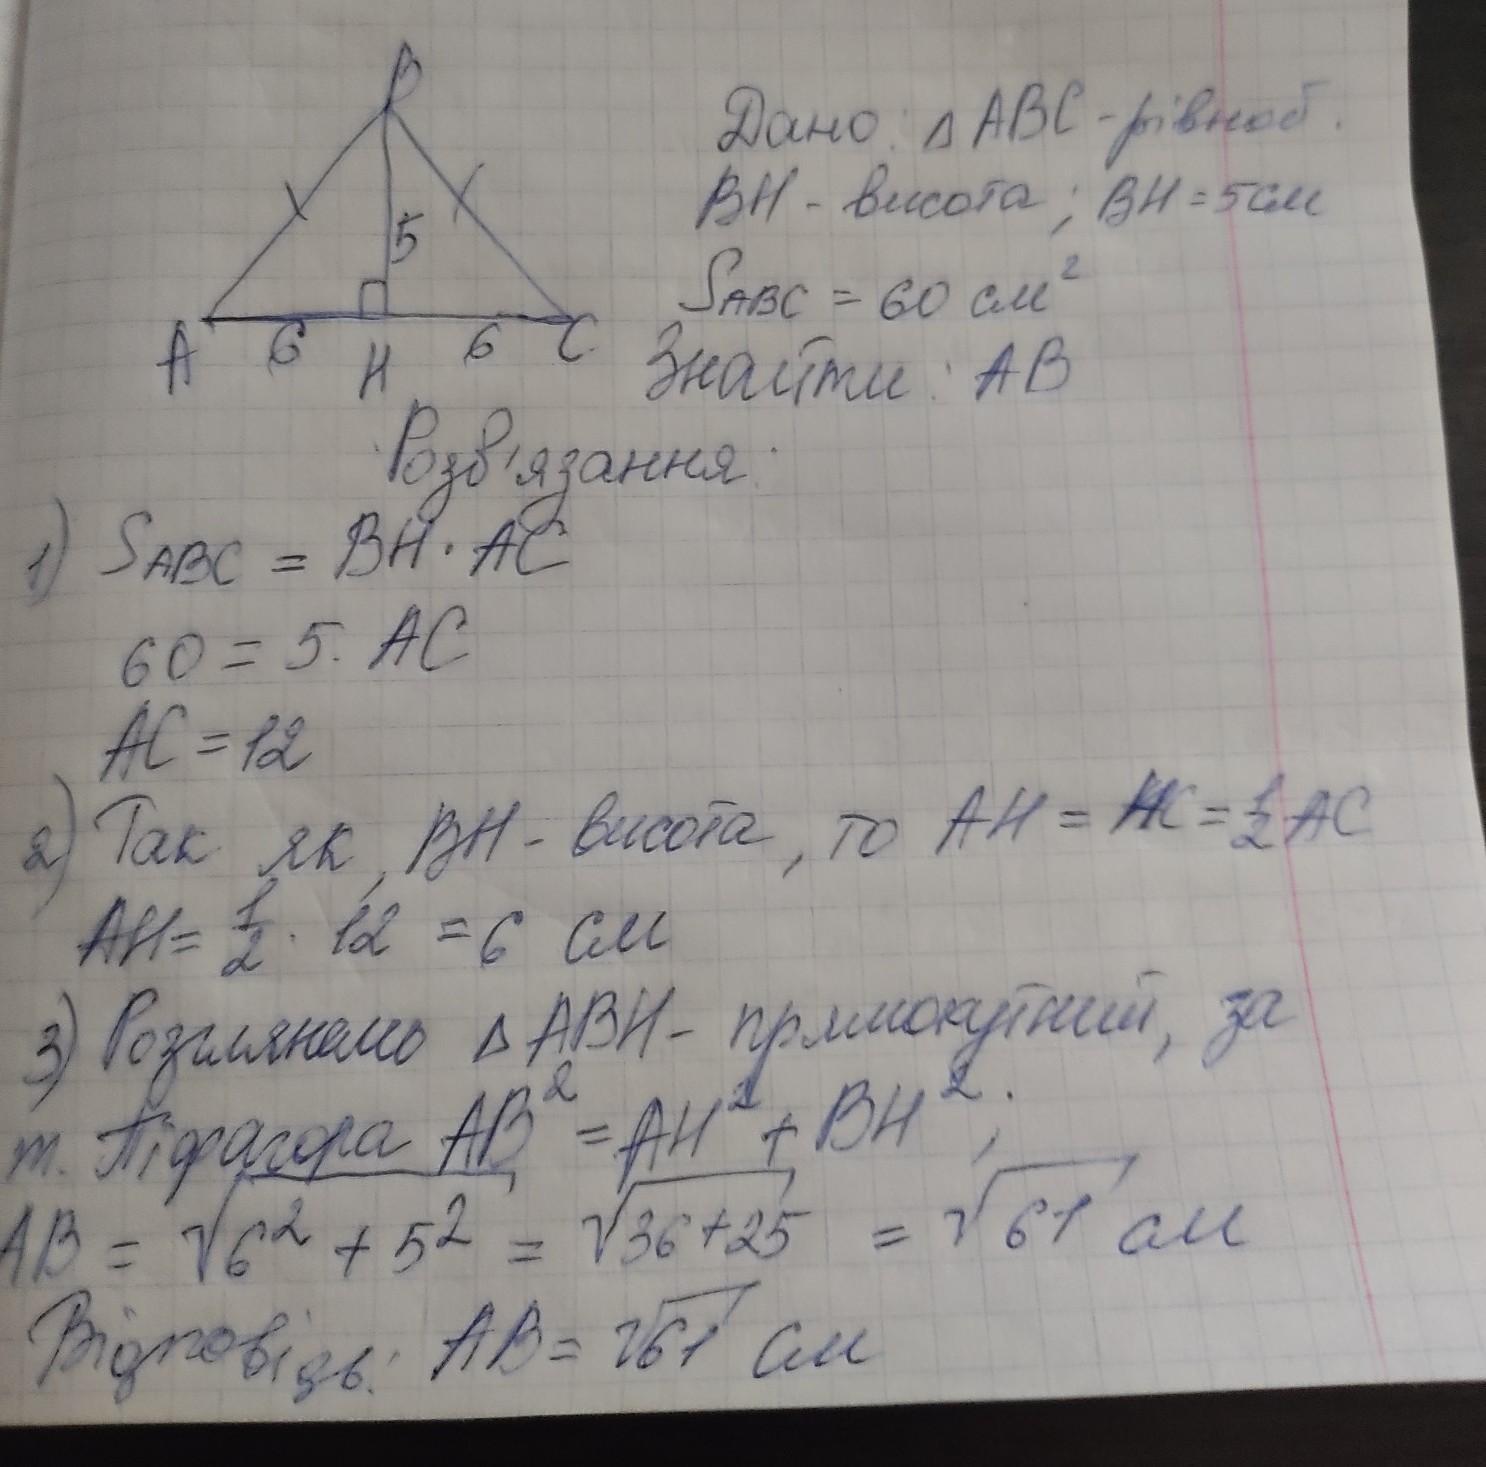 B
Дано: △ ABC - рівноб.
BH - висота; BH = 5 см
5
S ABC = 60 см²
A 6 H 6 C
Знайти: AB
Розв'язання:
1) S ABC = BH · AC
60 = 5 · AC
AC = 12
2) Так як, BH - висота, то AH = HC = 1/2 AC
AH = 1/2 · 12 = 6 см
3) Розглянемо △ ABH - прямокутний, за
т. Піфагора AB² = AH² + BH²;
AB = √6² + 5² = √36+25 = √61 см
Відповідь: AB = √61 см